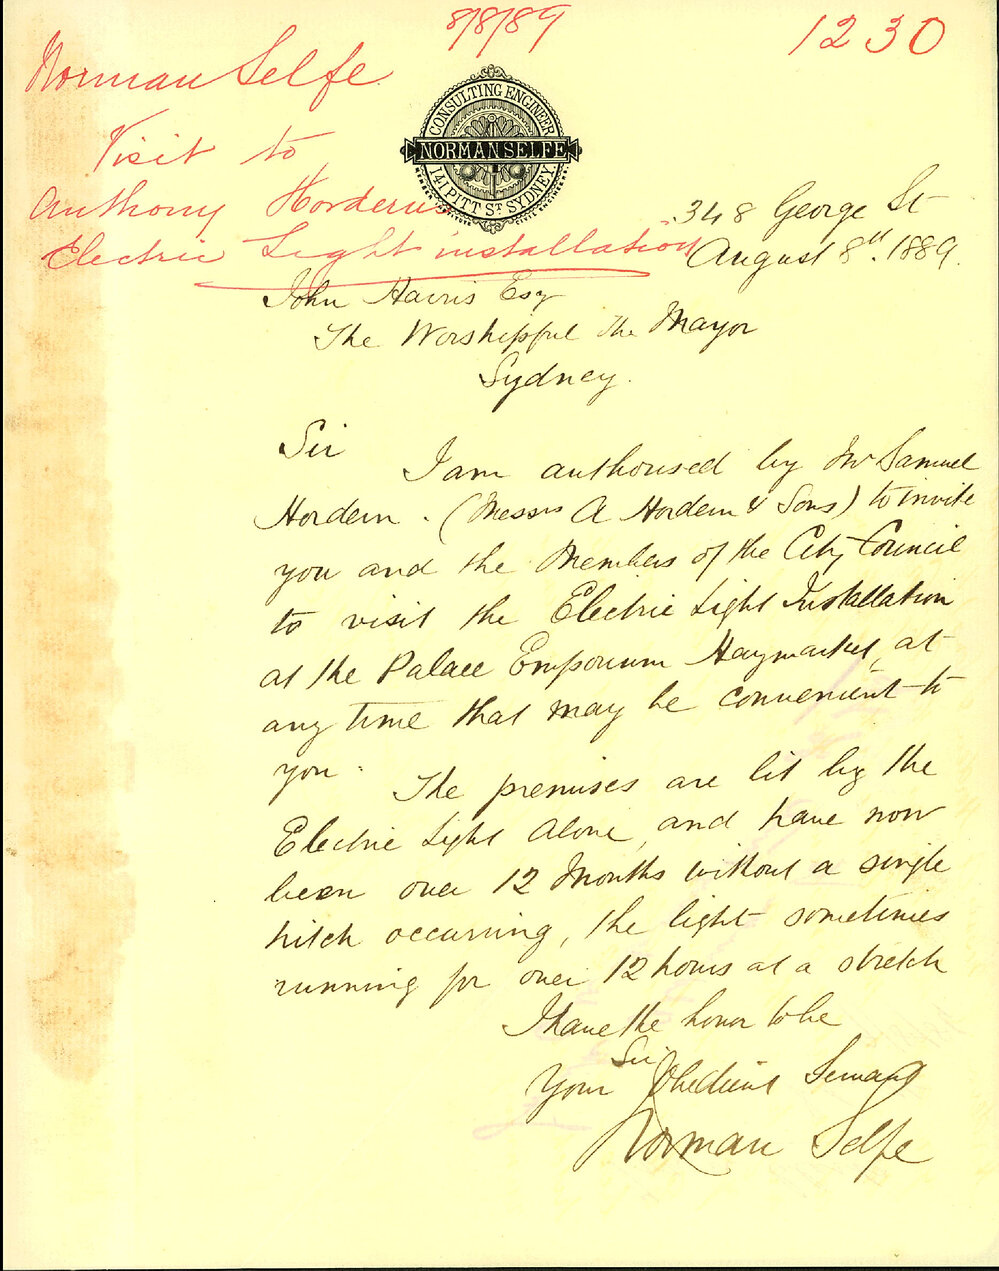 8/8/89
1230
Norman Selfe
Visit to
Anthony Horderns
Electric Light installation
CONSULTING ENGINEER
NORMAN SELFE
141 PITT ST SYDNEY
348 George St
August 8th. 1889.
John Harris Esq
The Worshipful the Mayor
Sydney.
Sir
I am authorised by Mr Samuel
Hordern. (Messrs A Hordern & Sons) to invite
you and the Members of the City Council
to visit the Electric Light Installation
at the Palace Emporium Haymarket, at
any time that may be convenient to
you.
The premises are lit by the
Electric Light alone, and have now
been over 12 Months without a single
hitch occurring, the light sometimes
running for over 12 hours at a stretch
I have the honor to be
Sir
Your Obedient Servant
Norman Selfe